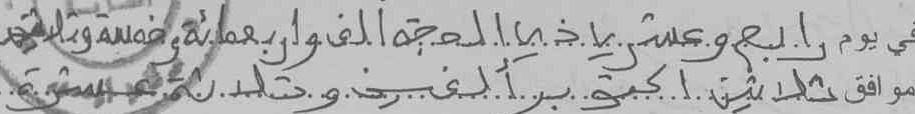 في يوم رابع وعشرين ذي الحجة الف واربعمائة وخمسة وثلاثين
موافق ثلاثين اكتوبر ألفين وثلاثة عشرة